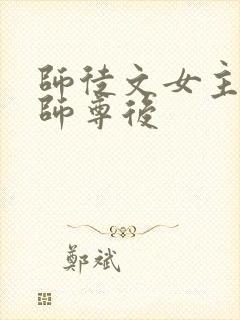 師徒文女主
師尊後
鄭斌